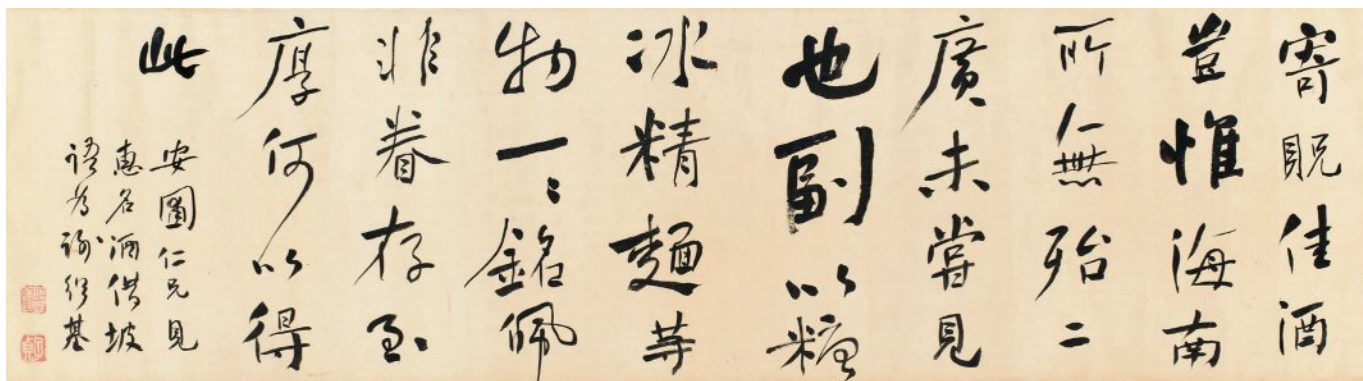 寄貺佳酒
豈惟海南
所無殆二
廣未嘗見
也副以糖
冰精麵等
物一〻銘佩
非眷存至
厚何以得
此
安圖仁兄見
惠名酒借坡
語為謝紹基